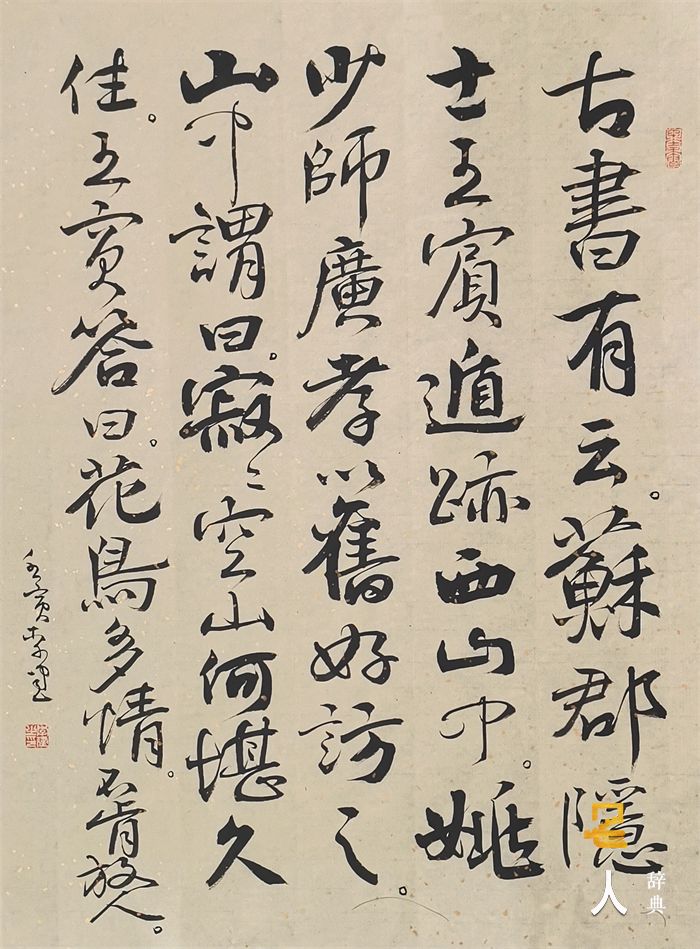 古書有云。蘇郡隱
士王賓遁跡西山中。姚
少師廣孝以舊好訪之。
山中謂曰。寂〻空山何堪久
住。王賓答曰。花鳥多情。不肯放人。
壬寅
名人辞典